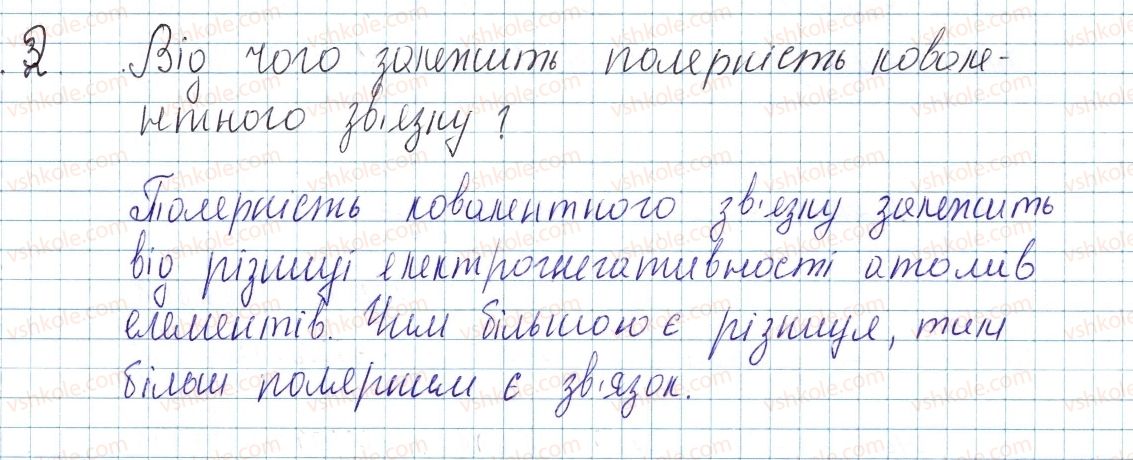 2. Від чого залежить полярність ковале-
нтного зв'язку?
Полярність ковалентного зв'язку залежить
від різниці електрогнегативності атомів
елементів. Чим більшою є різниця, тим
більш полярним є зв'язок.